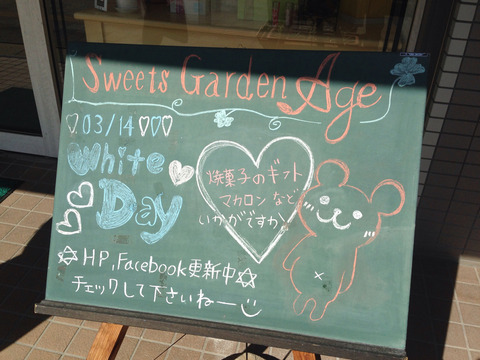 Sweets Garden Age
03/14
White
Day
焼菓子のギフト
マカロン など
いかがですか
HP, Facebook更新中
チェックして下さいねー